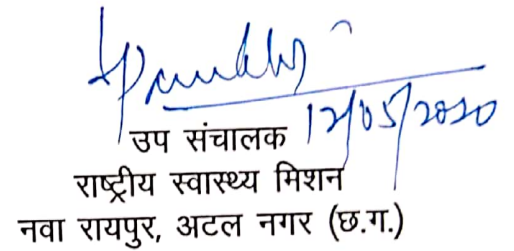 12/05/2020
उप संचालक
राष्ट्रीय स्वास्थ्य मिशन
नवा रायपुर, अटल नगर (छ.ग.)